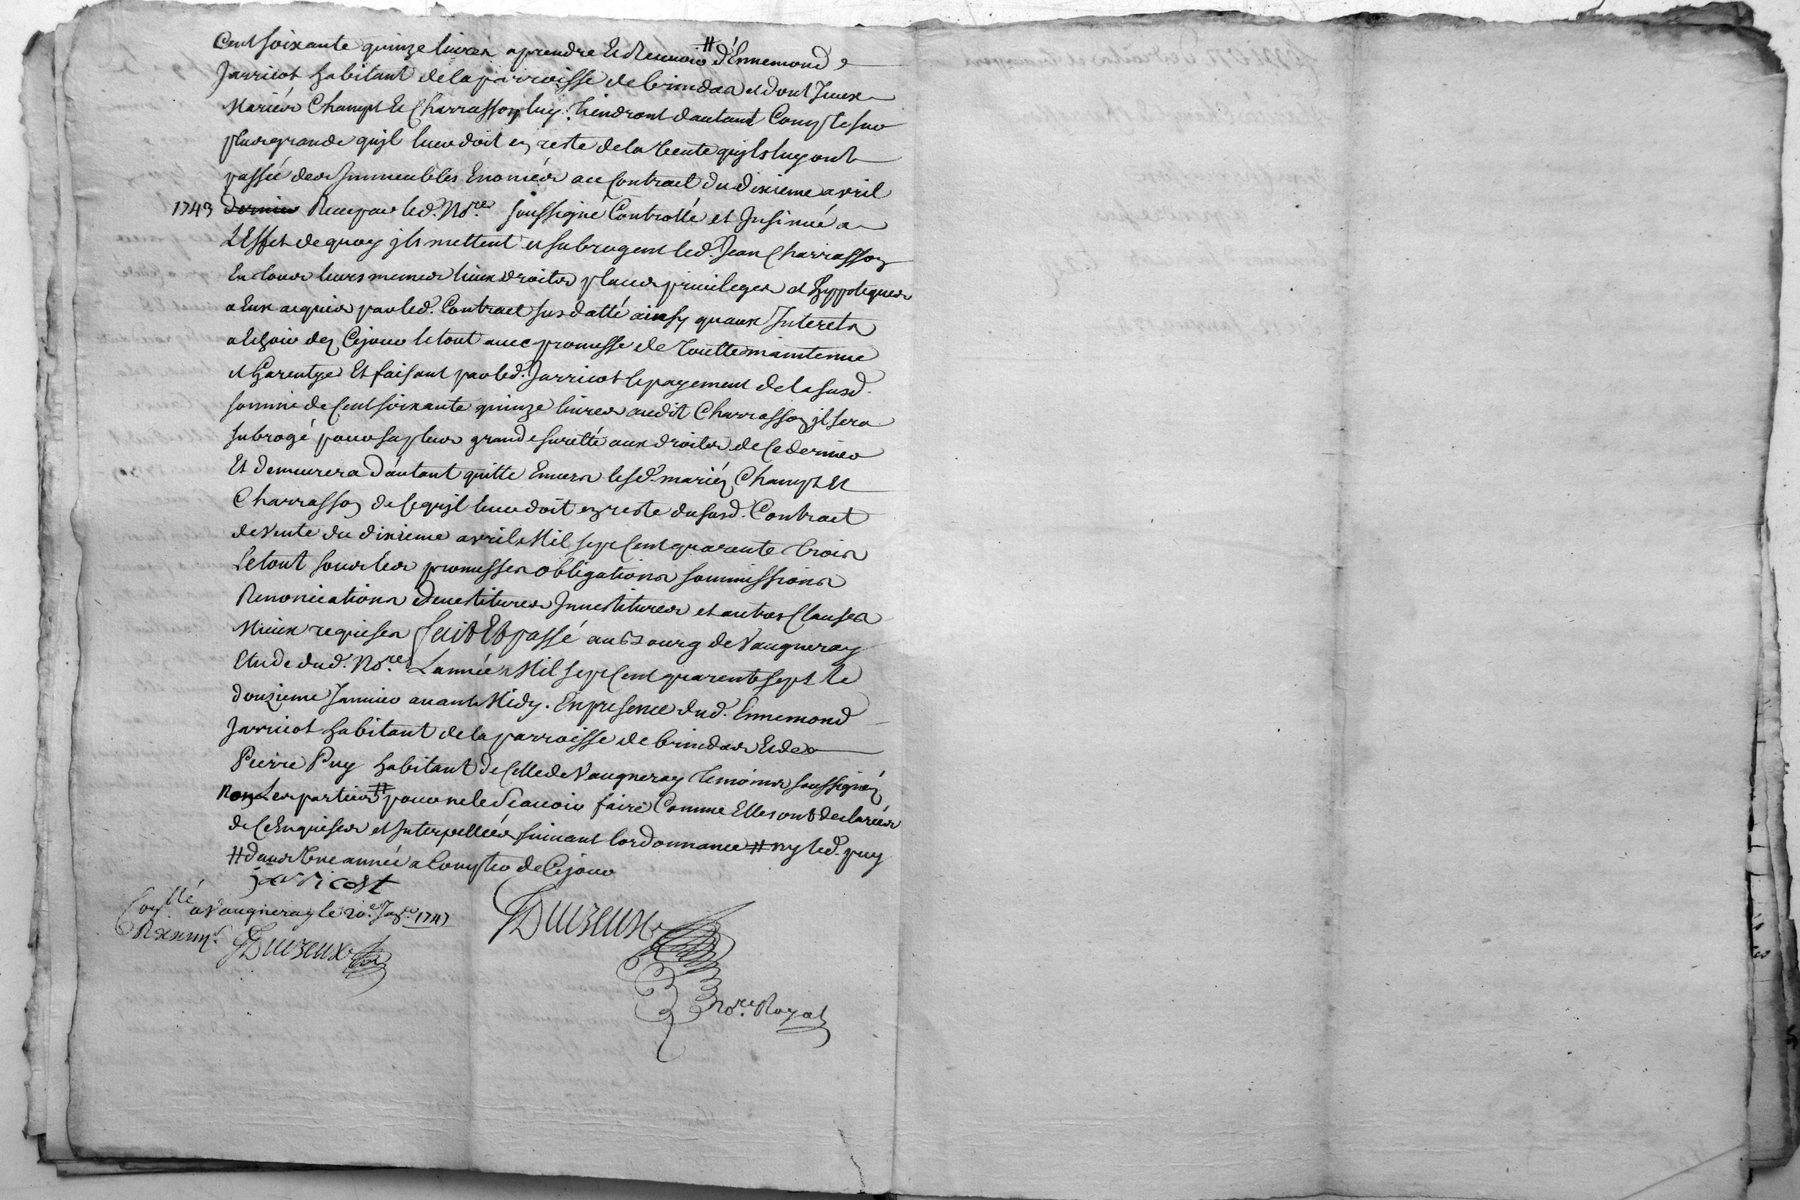 Cent soixante quinze livres aprendre et Recevoir # d'Ennemond
Jarricot habitant de la parroisse de brindas et dont Iceux
Mariés Champt et Charrasson luy tiendront dautant Compte sur
plus grande quil leur doit en reste de la Vente quils luy ont
passée des Immeubles Enoncés au Contract du dixieme avril
1743 dernier Receu par led. No.re soussigné Controllé et Insinué a
L'Effet de quoy ils mettent et subrogent led. Jean Charrasson
En tous leurs memes lieux droits places privileges et hyppoteques
a Eux acquis par led. Contract susdatté ainsy quaux Interets
a Echoir dez Cejour le tout avec promesse de Toutte maintenue
et Garentye Et faisant par led. Jarricot le payement de la susd.
somme de Cent soixante quinze livres audit Charrasson il sera
subrogé pour sa plus grande suretté aux droits de Cedernier
Et demeurera dautant quitte Envers lesd. mariéz Champt Et
Charrasson de Cequil leur doit en reste du susd. Contract
de Vente du dixieme avril Mil sept Cent quarente trois
Le tout sous les promesses obligations soumissions
Renonciations Devestitures Investitures et autres Clauses
Mieux requises fait Et passé au Bourg de Vaugneray
Etude dud. No.re L'année Mil sept Cent quarente sept Le
douzieme Janvier avant Midy. En presence dud. Ennemond
Jarricot habitant de la parroisse de brindas Et de
Pierre Puy habitant de Celle de Vaugneray temoins soussignéz
non Les parties # pour ne le scavoir faire Comme Elles ont declarées
de Ce Enquises et Interpellées suivant lordonnance # ny led. puy
# dans Une année a Compter de Cejour
jarricost
Con.llé a Vaugneray le 20.e Jav.er 1747
Duizeux
Duizeux
No.re Royal